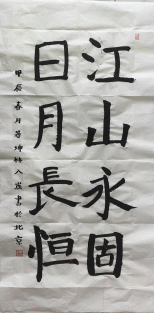 江山永固
日月長恒
甲辰春月苦坤特人岚書於北京